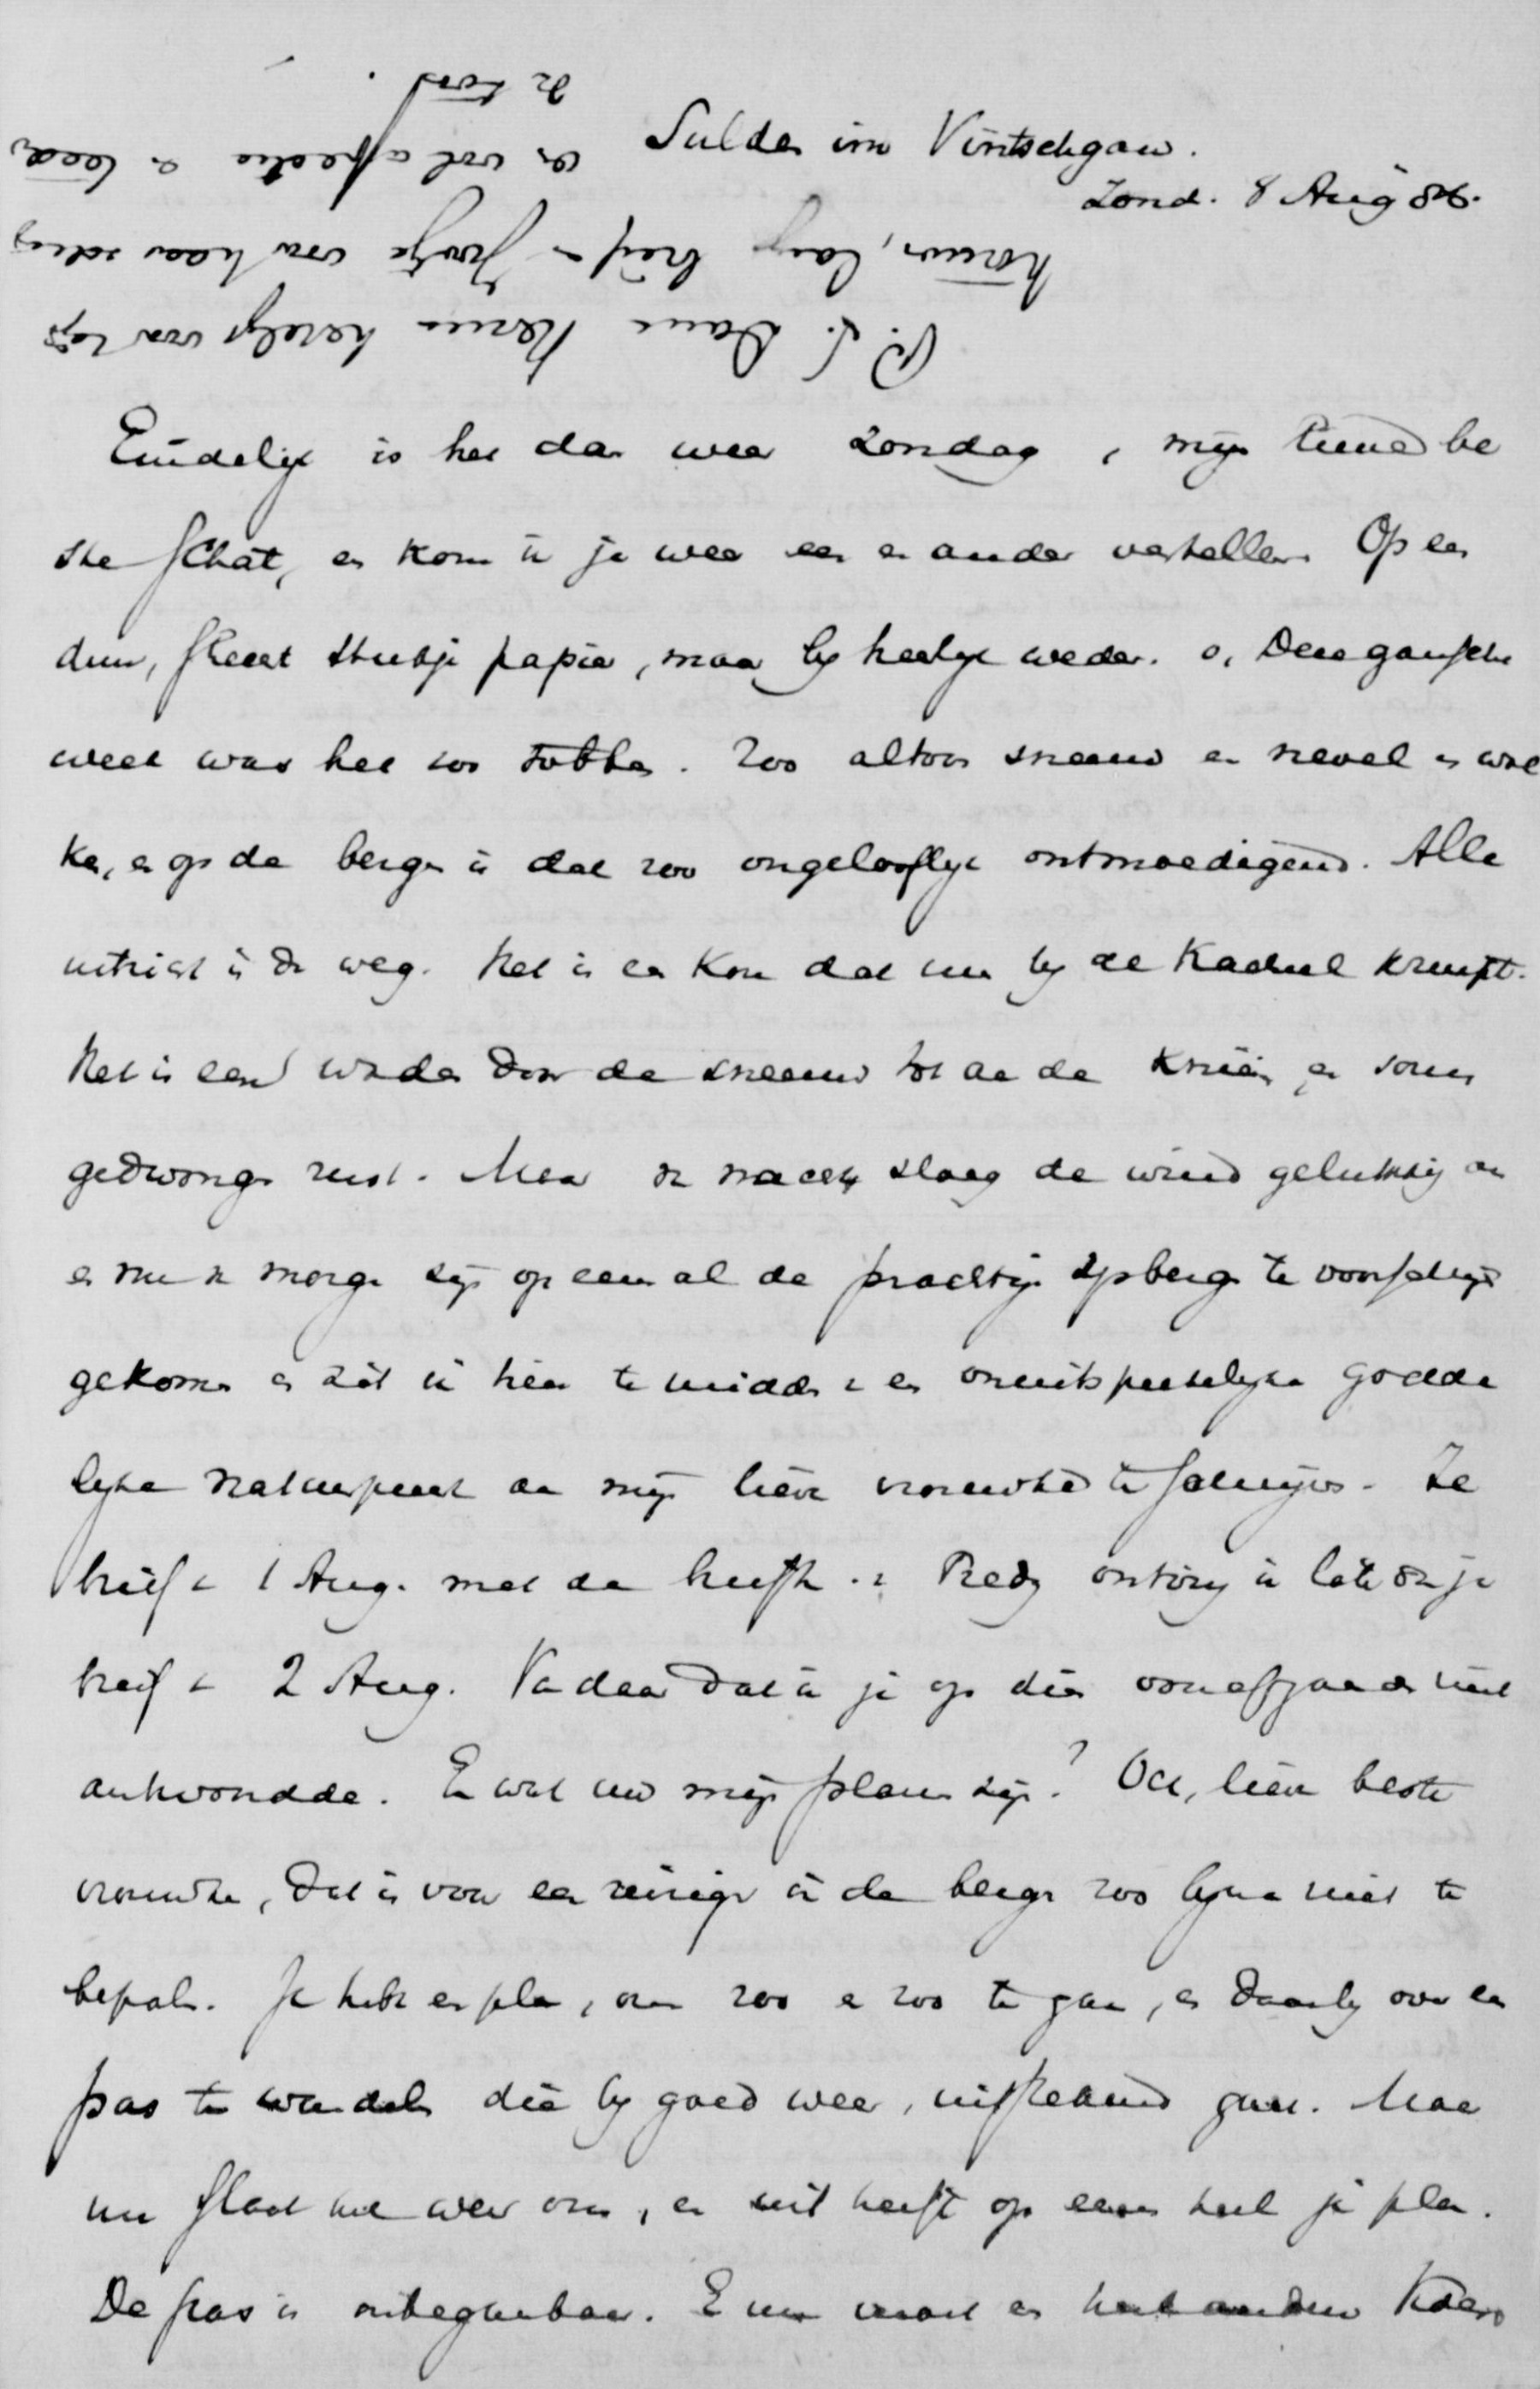 Sulden im Vintschgau.
Zond. 8 Aug 86.
P.S. Dank Harm hartelyk voor zijn
lang brief en Jrtje voor haar schrijv
en vol affectie
de toon.
Eindelijk is het dan weer Zondag, mijn liemd be
ste schat, en kom ik je weer een en ander vertellen. Op een
dun, slecht stukje papier, maar by heerlyk weder. o, Deze gansche
week was het zoo tobben. Zoo altoos sneeuw en nevel en wol
ken, en op de bergen is dat zoo ongelooflyk ontmoedigend. Alle
uitzicht is dan weg. Het is een kou dat men by de kachel kruipt.
Het is een waden door de sneeuw tot aan de knieën, en soms
gedwongen rust. Maar van nacht sloeg de wind gelukkig om
en nu van morgen zijn op eenmaal de prachtige ijsbergen te voorschijn
gekomen en zit ik hier te midden van een onuitsprekelyke godde
lyke natuurpracht aan mijn lieve vrouwke te schrijven. Je
brief van 1 Aug. met de brieft van Fredy ontving ik later dan je
brief van 2 Aug. Van daar dat ik je op dien voorafgaanden niet
antwoordde. En wat nu mijn plannen zijn? Och, lieve beste
vrouwke, dat is voor een reiziger in de bergen zoo byna niet te
bepalen. Je hebt een plan, om zoo en zoo te gaan, en daarby over een
pas te wandelen die by goed weer, uitstekend gaat. Maar
nu slaat het weer om, en uit heeft op eens heel je plan.
De pas is onbegaanbaar. En nu moet er heel anders koers